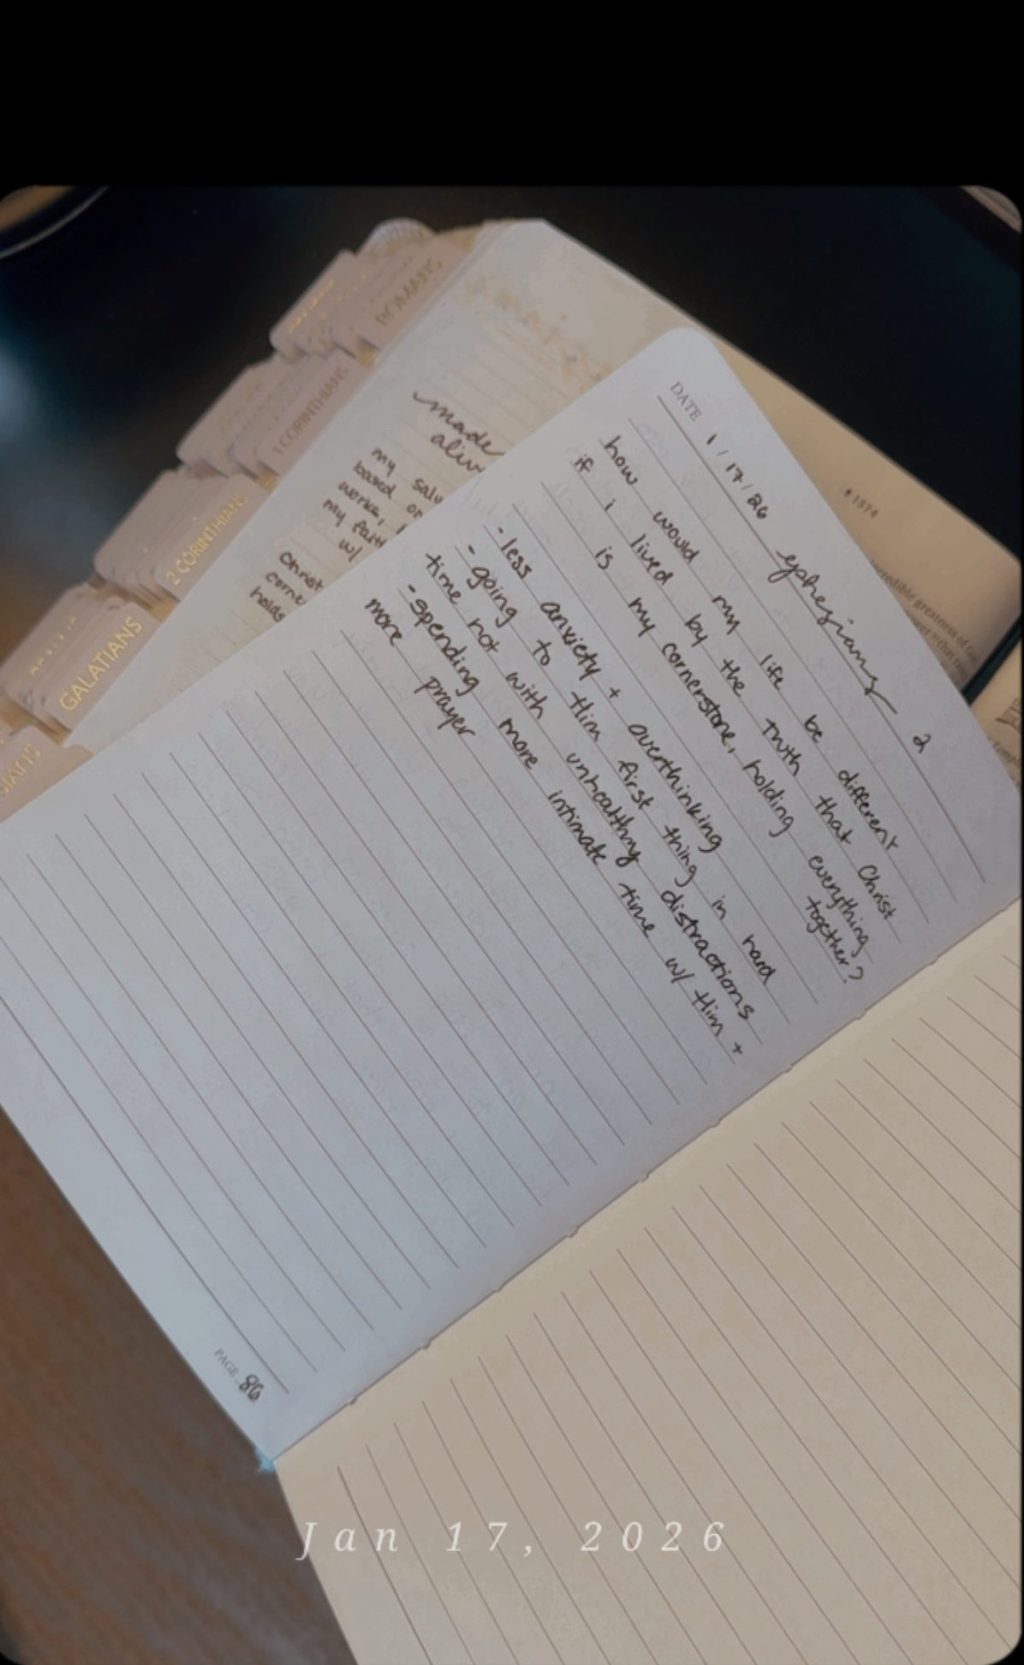 ROMANS
1 CORINTHIANS
2 CORINTHIANS
GALATIANS
made
my
based
works,
my faith
w/
Christ
holds
1574
DATE 1/17/26 ephesians 2
how would my life be different
if i lived by the truth that Christ
is my cornerstone, holding everything
together?
- less anxiety + overthinking
- going to Him first thing in hard
time not with unhealthy distractions
- spending more intimate time w/ Him +
more prayer
PAGE 86
Jan 17, 2026